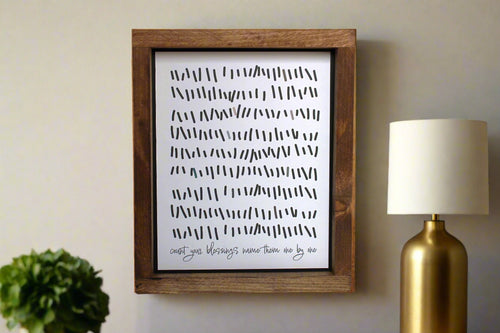 count your blessings name them one by one